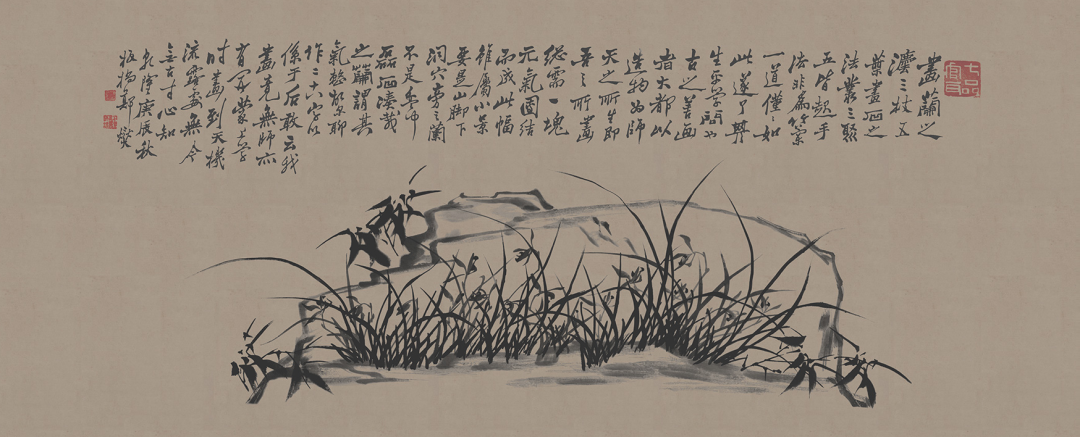 七品官耳
畫蘭之
灋三枝五
葉畫石之
法叢三聚
五皆起手
法非為竹蘭
一道僅僅如
此遂了其
生平學問也
古之善畫
者大都以
造物為師
天之所生即
吾之所畫
總需一塊
元氣團結
而成此幅
雖屬小景
要是山脚下
洞穴旁之蘭
不是盆中
磊石湊栽
之蘭謂其
氣整故爾聊
作二十八字以
係于后敢云我
畫竟無師亦
有開蒙上學
時畫到天機
流露處無今
無古寸心知
乾隆庚辰秋
板橋鄭燮